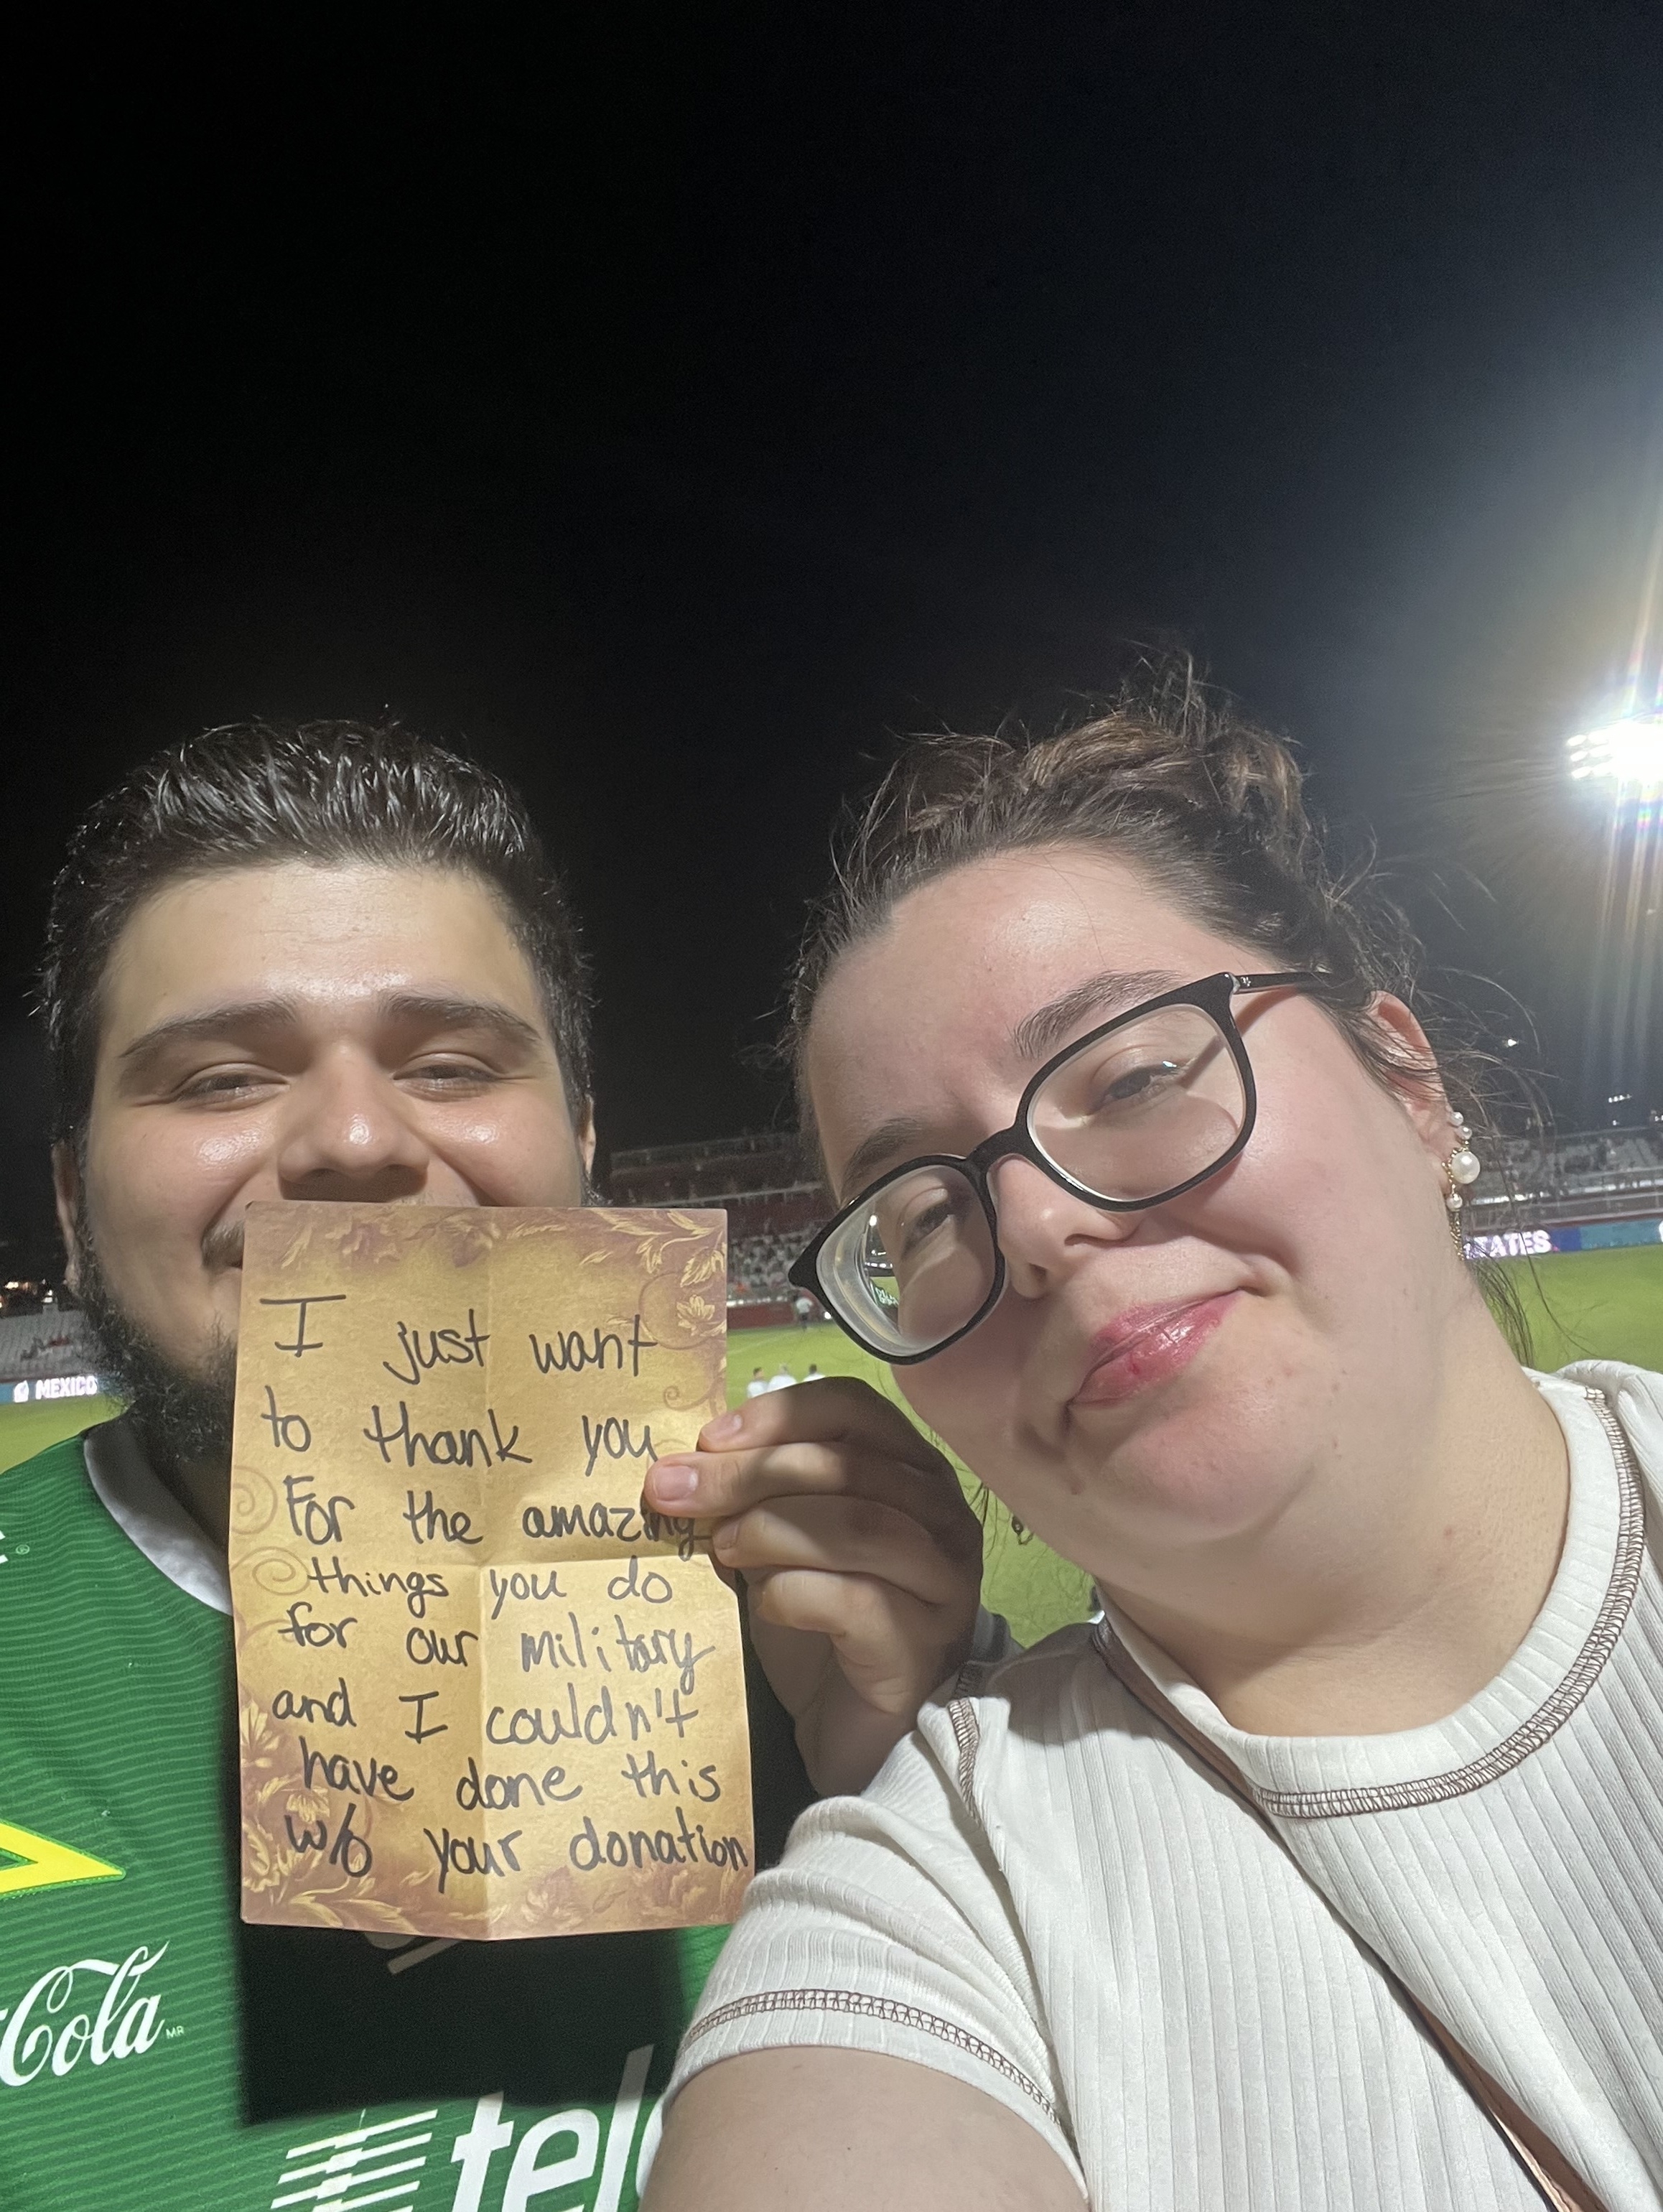 TATES
MEXICO
I just want
to thank you
For the amazing
things you do
for our military
and I couldn't
have done this
w/o your donation
Cola MR
tel